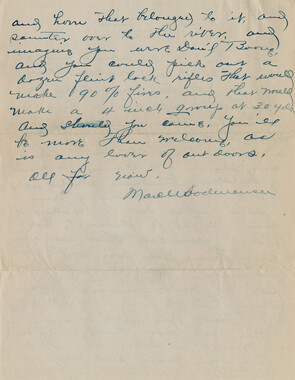 and horn that belongs to it, and
saunter over to the river, and
imagine you were Dan'l Boone,
and you could pick out a
dozen flint lock rifles that would
make 90% fires. and that would
make a 4 inch group at 20 yds
And should you come, you'll
be more than welcome, as
is any lover of out doors.
All for now.